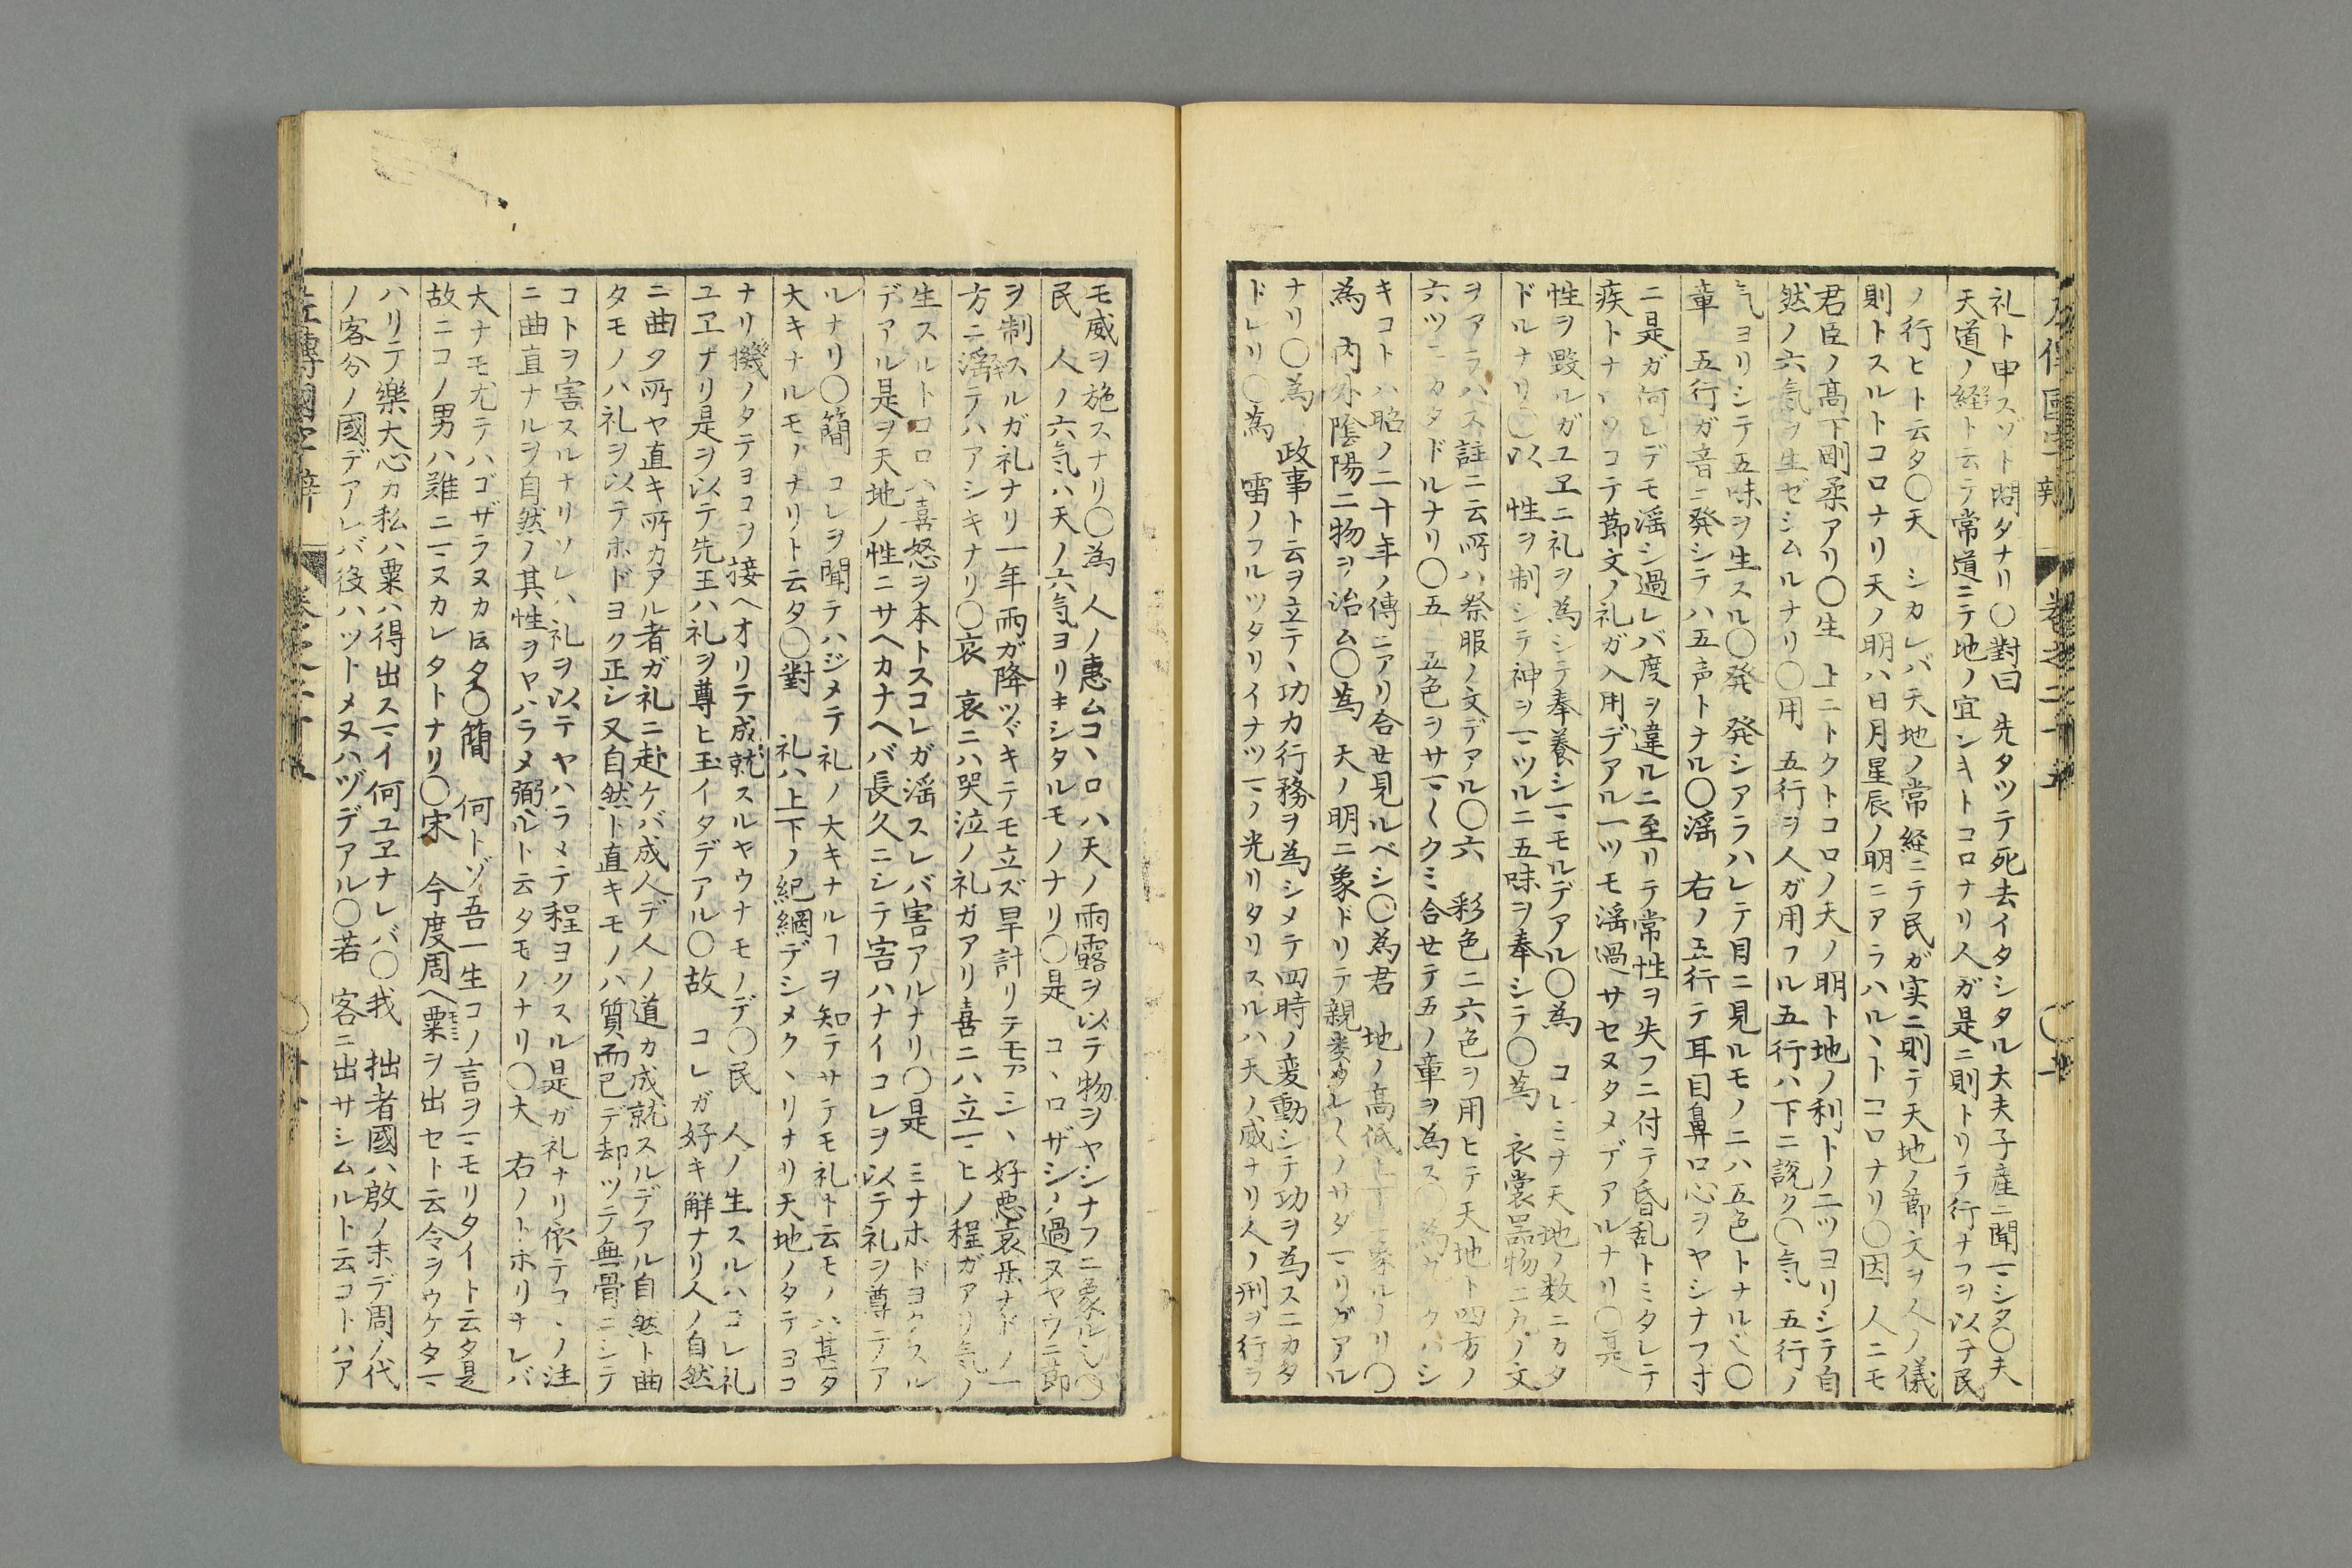 礼ト申スゾト問タナリ〇對曰　先タツテ死去イタシタル大夫子産ニ聞マシタ〇夫
天道ノ経ト云テ常道ニテ地ノ宜シキトコロナリ人ガ是ニ則トリテ行ナフヲ以テ民
ノ行ヒト云タ〇天　シカレバ天地ノ常経ニテ民ガ実ニ則テ天地ノ節文ヲ人ノ儀
則トスルトコロナリ天ノ明ハ日月星辰ノ明ニアラハルヽトコロナリ〇因　人ニモ
君臣ノ髙下剛柔アリ〇生　上ニトクトコロノ天ノ明ト地ノ利トノ二ツヨリシテ自
然ノ六氣ヲ生ゼシムルナリ〇用　五行ヲ人ガ用フル五行ハ下ニ説ク〇気　五行ノ
気ヨリシテ五味ヲ生スル〇発　発シアラハレテ目ニ見ルモノニハ五色トナルベ〇
章　五行ガ音ニ発シテハ五声トナル〇淫　右ノ五行テ耳目鼻口心ヲヤシナフ寸
ニ是ガ何レデモ淫シ過レバ度ヲ違ルニ至リテ常性ヲ失フニ付テ昏乱トミタレテ
疾トナ　コテ節文ノ礼ガ入用デアル一ツモ淫過サセヌタメデアルナリ〇是
性ヲ毀ルガユヱニ礼ヲ為シテ奉養シマモルデアル〇為　コレミナ天地ノ数ニカタ
ドルナリ〇以　性ヲ制シテ神ヲマツルニ五味ヲ奉シテ〇為　衣裳噐物ニ九ノ文
ヲアラハス註ニ云所ハ祭服ノ文デアル〇六　彩色ニ六色ヲ用ヒテ天地ト四方ノ
六ツニカタドルナリ〇五　五色ヲサマ〱クミ合セテ五ノ章ヲ為ス〇為　クハシ
キコトハ昭ノ二十年ノ傳ニアリ合セ見ルベシ〇為君　地ノ髙低上下ニ象ルナリ〇
為　内外陰陽二物ヲ治ム〇為　天ノ明ニ象ドリテ親
ナリ〇為　政事ト云ヲ立テヽ功力行務ヲ為シメテ四時ノ変動シテ功ヲ為スニカタ
ドレリ〇為　雷ノフルツタリイナツマノ光リタリスルハ天ノ威ナリ人ノ刑ヲ行ラ
モ威ヲ施スナリ〇為　人ノ惠ムコヽロハ天ノ雨露ヲ以テ物ヲヤシナフニ象ルレ〇
民　人ノ六気ハ天ノ六気ヨリキシタルモノナリ〇是　コヽロザシノ過ヌヤウニ節
ヲ制スルガ礼ナリ一年雨ガ降ツヾキテモ立ズ旱計リテモアシヽ好悪哀乐ナドノ一
方ニ淫テハアシキナリ〇哀　哀ニハ哭泣ノ礼ガアリ喜ニハ立マヒノ程ガアリ気ノ
生スルトコロハ喜怒ヲ本トスコレガ淫スレバ害アルナリ〇是　ミナホドヨクスル
デアル是ヲ天地ノ性ニサヘカナヘバ長久ニシテ害ハナイコレヲ以テ礼ヲ尊テア
ルナリ〇簡　コレヲ聞テハジメテ礼ノ大キナルヿヲ知テサテモ礼ト云モノハ甚タ
大キナルモノナリト云タ〇對　礼ハ上下ノ紀綱デシメクヽリナリ天地ノタテヨコ
ナリ機ノタテヨコヲ接ヘオリテ成就スルヤウナモノデ〇民　人ノ生スルハコレ礼
ユヱナリ是ヲ以テ先王ハ礼ヲ尊ヒ玉イタデアル〇故　コレガ好キ解ナリ人ノ自然
ニ曲タ所ヤ直キ所カアル者ガ礼ニ赴ケバ成人デ人ノ道カ成就スルデアル自然ト曲
タモノハ礼ヲ以テホドヨク正シ又自然ト直キモノハ質而已デ却ツテ無骨ニシテ
コトヲ害スルナリソレハ礼ヲ以テヤハラメテ程ヨクスル是ガ礼ナリ依テコヽノ注
ニ曲直ナルヲ自然ノ其性ヲヤハラメ弼ルト云タモノナリ〇大　右ノトホリナレバ
大ナモ尤テハゴザラヌカト云タ〇簡　何トゾ吾一生コノ言ヲマモリタイト云タ是
故ニコノ男ハ難ニマヌカレタトナリ〇宋　今度周ヘ粟ヲ出セト云令ヲウケタマ
ハリテ樂大心カ私ハ粟ハ得出スマイ何ユヱナレバ〇我　拙者國ハ殷ノ末デ周ノ代
ノ客分ノ國デアレバ役ハツトメヌハヅデアル〇若　客ニ出サシムルト云コトハア